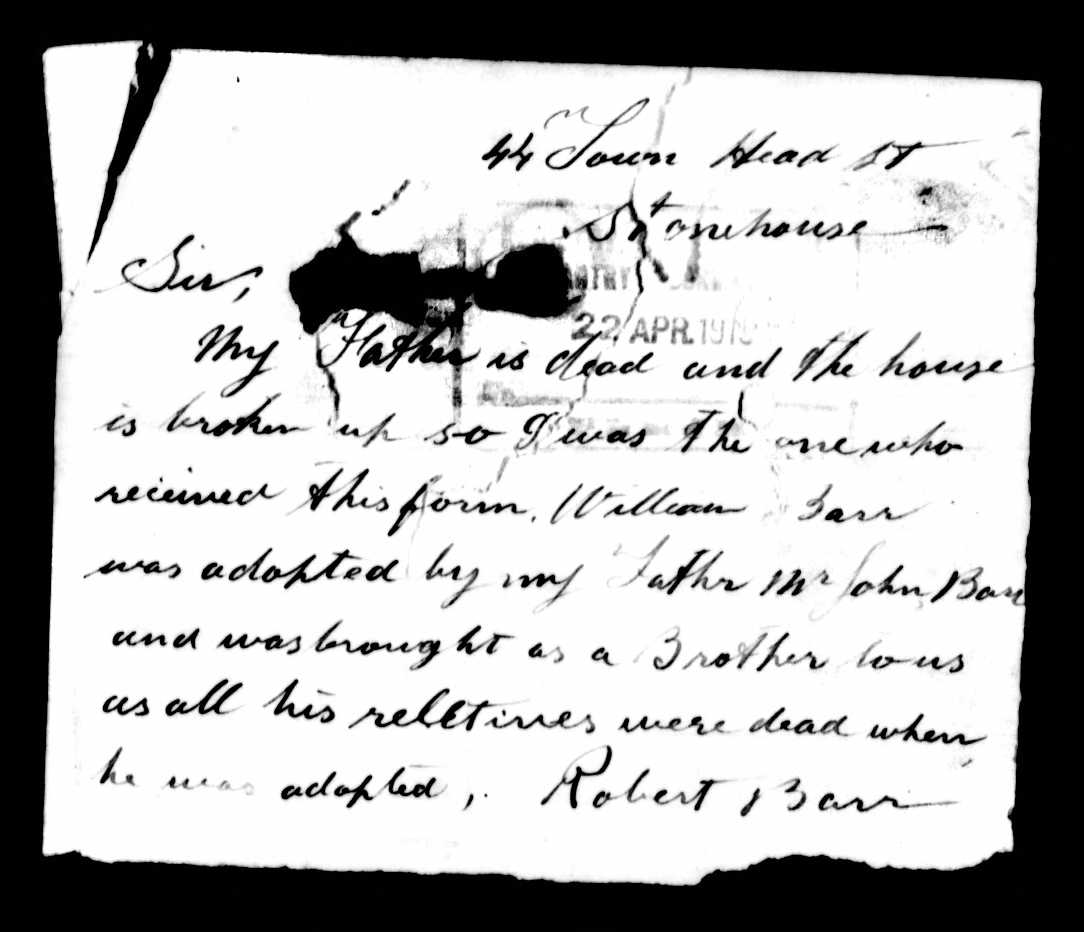 44 Town Head St
Stonehouse
Sir,
22 APR. 1919
My Father is dead and the house
is broken up so I was the one who
received this form. William Barr
was adopted by my Father Mr John Barr
and was brought as a Brother to us
as all his relitives were dead when
he was adopted, Robert Barr